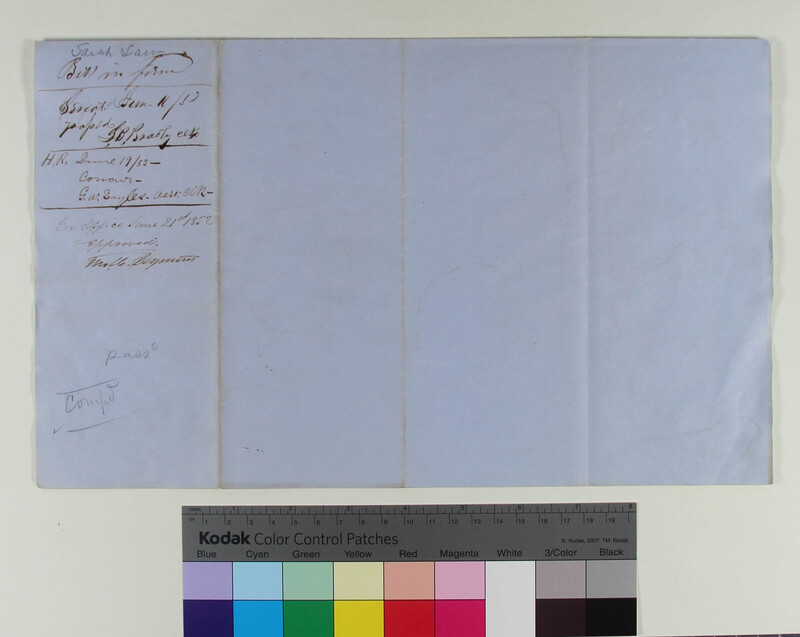 Sarah
Bill in form
Senate June 16/52
passed
J.B. Brady clk
H.R. June 19/52 —
Concur —
G.W. Sayles — asst: clk —
Ex Office June 21st 1852
Approved.
Thos. H. Seymour
Pass'd
Comp'd
1 2 3 4 5 6 7 8
cm 1 2 3 4 5 6 7 8 9 10 11 12 13 14 15 16 17 18 19
Kodak Color Control Patches
© Kodak, 2007 TM: Kodak
Blue Cyan Green Yellow Red Magenta White 3/Color Black